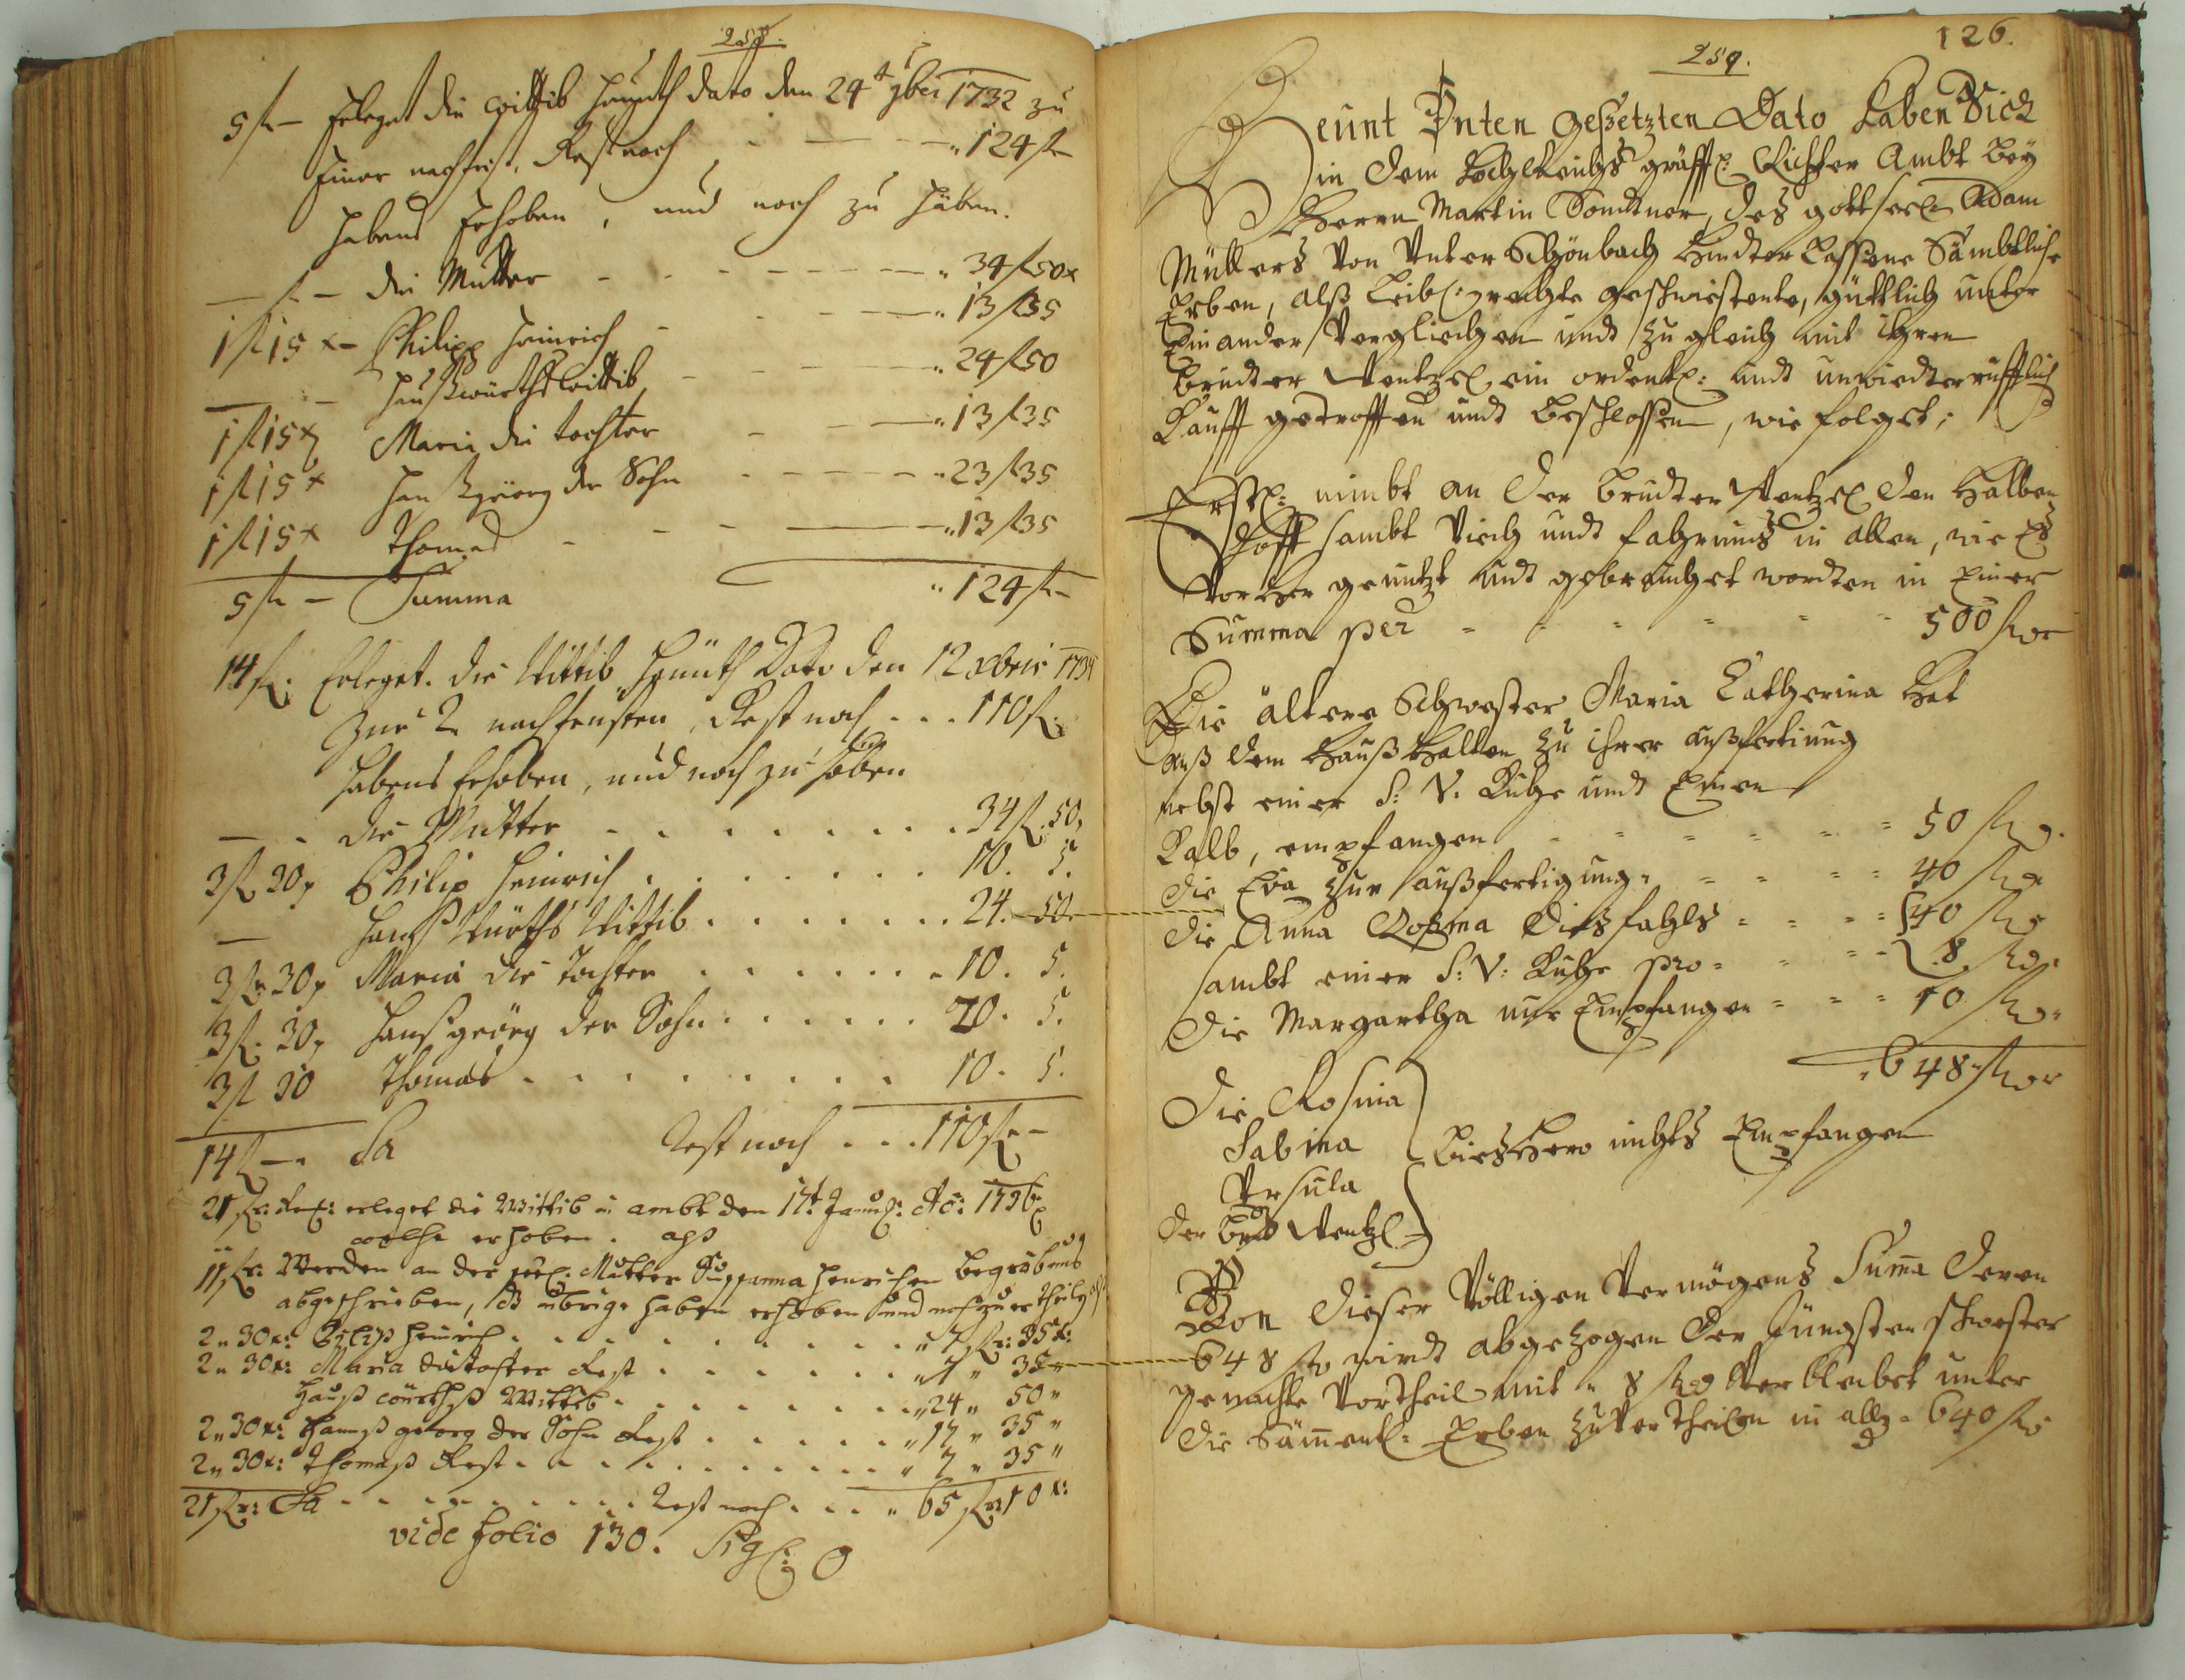 258.
5 fl — Erleget die Wittib Heunth dato den 24t 9bei 1732 zu
Einer nachfrist, Rest noch . — — „ 124 fl —
Habens Erhoben, und noch zu Haben.
— fl — die Mutter — — — — — — „ 34 fl 50 x
1 fl 15 x — Philipp Heinrich — — — „ 13 fl 35
— — Hanßwürths Wittib — — — — „ 24 fl 50
1 fl 15 x Maria die tochter — — — „ 13 fl 35
1 fl 15 x Hanßgeörg der Sohn — — — — „ 23 fl 35
1 fl 15 x Thomas — — — — „ 13 fl 35
5 fl — Summa „ 124 fl —
14 fl. Erleget die Wittib Heunth Dato den 12 xbris 1734
Zur 2 nachfristen, Rest noch . . . 110 fl.
Habens Erhoben, und noch zu haben
— . die Mutter . . . . . . . . 34 fl. 50.
3 fl 30 x Philip Heinrich . . . . . . . 10. 5.
— Hanß Würths Wittib . . . . . . 24. 50.
3 fl 30 x Maria die Tochter . . . . . . 10. 5.
3 fl. 30 x Hanßgeörg der Sohn . . . . . . 20. 5.
3 fl 30 Thomas . . . . . . . . 10. 5.
14 fl — . Sa Rest noch . . . 110 fl —
21 fl: erleget die Wittib in ambt den 17t: Januar: Ao: 1736
welche erhoben. alß
11 fl: Werden an der seel: Mutter Susanna Henrichen begräbnus
abgeschrieben, die übrige haben erhoben und noch zu
2 „ 30 x: Philip Heinrich . . . . . . . . . „ 7 fl: 35 x:
2 „ 30 x: Maria die tochter Rest . . . . . . „ 7 „ 35 „
Hanß würthß Wittib . . . . . . . . „ 24 „ 50 „
2 „ 30 x: Hannß georg der Sohn Rest . . . . . „ 17 „ 35 „
2 „ 30 x: Thomaß Rest . . . . . . . . . . „ 7 „ 35 „
21 fl: Sa . . . . . . . . . Rest noch . . . „ 65 fl 10 x:
vide folio 130. Sig:
126.
259.
Heunt Unten gesetzten Dato Haben Sich
in dem Hochreichs gräffl: Richter Ambt bey
Herrn Martin Sondtner, des gottseel: Adam
Müllers Von Unter Schönbach Hindterlassene Sämbtliche
Erben, alß leibl: rechte geschwiestente, güttlich unter
Einander Verglichen undt zugleich mit Ihren
Brudter Wentzel ein ordentl: undt unwiedterrufflich
Kauff getroffen undt beschlossen, wie folget;
Erstl: nimbt an der Brudter Wentzel den Halben
Hoff sambt Viech undt fahrnus in allen, wie Es
Vorher genutzt undt gebrauchet wordten in Einer
Summa per - - - - - - 500 fl
Die ältere Schwester Maria Catherina Hat
auß dem Haußhalten zu ihrer außfertiung
nebst einer S: V: Kuhe undt Einen
Kalb, empfangen - - - - - - 50 fl
die Eva zur außfertigung - - - - - 40 fl
die Anna Rosina diesfahls - - - - 40 fl
sambt einer S: V: Kuhe pro - - - - 8 fl
die Margartha nur Empfangen - - - 10 fl
„ 648 fl
Die Rosina
Sabina
Ursula
der Brud Wentzl
Bieshero nichts Empfangen
Von dieser Völligen Vermögens Summa deren
648 fl wirdt abgezogen der jüngsten schwester
gemachte Vortheil mit „ 8 fl Verbleibet unter
die Sämentl: Erben zu Vertheilen in allen „ 640 fl